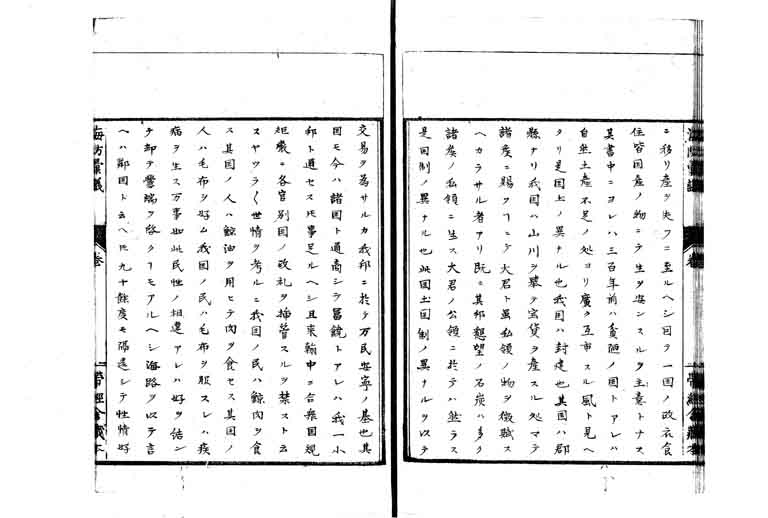 ニ移リ産ヲ失フニ至ルヘシ曰ク一国ノ政衣食
住皆国産ノ物ニテ生ヲ安ンスルヲ主意トナス
其書中ニヨレハ三百年前ハ貧陋ノ国トアレハ
自然土産不足ノ処ヨリ廣ク互市スル風ト見ヘ
タリ是国土ノ異ナル也我国ハ封建也其国ハ郡
縣ナリ我国ハ山川ヲ挙テ宝貨ヲ産スル処マテ
諸矦ニ賜フヿニテ大君ト虽私領ノ物ヲ徴賦ス
ヘカラサル者アリ既ニ其邦懇望ノ石炭ハ多ク
諸矦ノ私領ニ生ス大君ノ公領ニ於テハ然ラス
是国制ノ異ナル也此国土国制ノ異ナルヲ以テ
海防彙議
巻
帶經舎藏本
交易ヲ為サルカ我邦ニ於テ万民安寧ノ基也其
国モ今ハ諸国ト通商シテ冨饒トアレハ我一小
邦ト通セス𪜈事足ルヘシ且来翰中ニ合衆国規
矩嚴ニ各官別国ノ政礼ヲ挿管スルヲ禁スト云
スヤツラ〱世情ヲ考ルニ我国ノ民ハ鯨肉ヲ食
ス其国ノ人ハ鯨油ヲ用ヒテ肉ヲ食セス其国ノ
人ハ毛布ヲ好ム我国ノ民ハ毛布ヲ服スレハ疾
病ヲ生ス万事如此民性ノ相違アレハ好ヲ結ン
テ却テ釁端ヲ啓クヿモアルヘシ海路ヲ以テ言
ヘハ鄰国ト云ヘ𪜈九十餘度モ隔遠シテ性情好
海防彙議
巻
帶經舎藏本